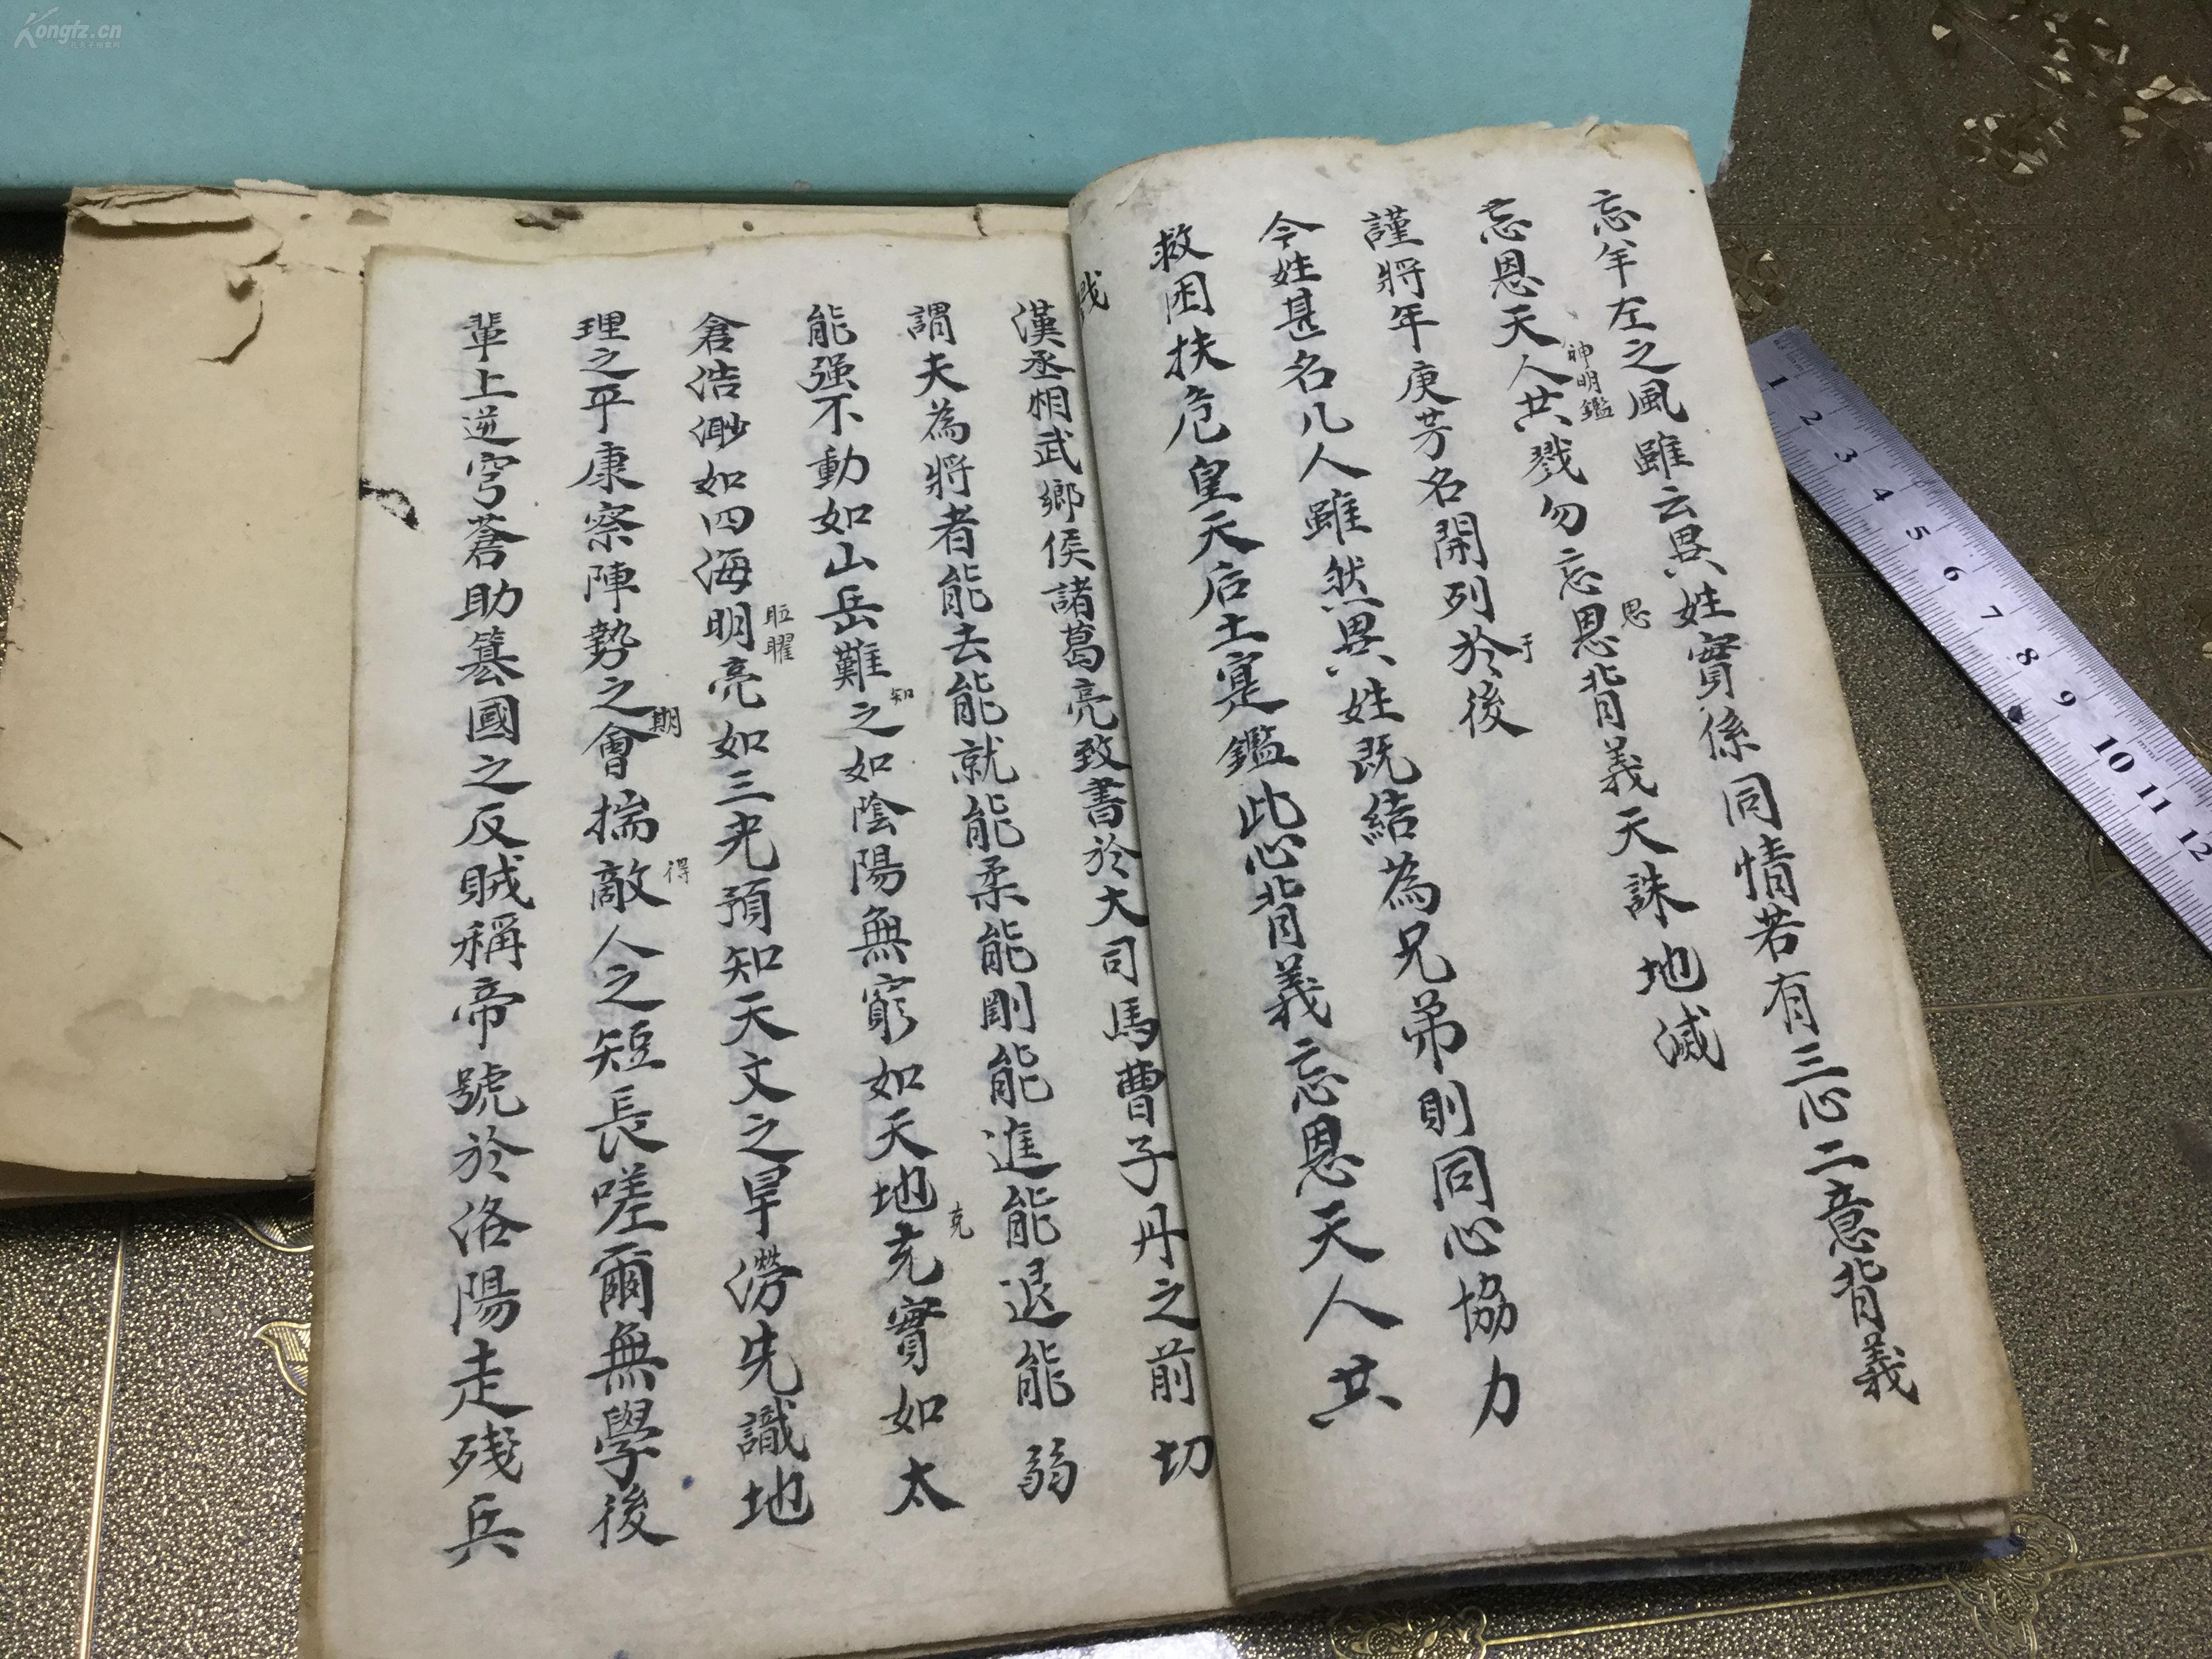 忘年左之風雖云異姓實係同情若有三心二意背義
忘恩天人共戮勿忘恩背義天誅地滅
神明鑑
思
謹將年庚芳名開列於後
于
今姓甚名几人雖然異姓既結為兄弟則同心協力
救困扶危皇天后土寔鑑此心背義忘恩天人共
戮
漢丞相武鄉侯諸葛亮致書於大司馬曹子丹之前切
謂夫為將者能去能就能柔能剛能進能退能弱
能強不動如山岳難之如陰陽無窮如天地充實如太
知
克
倉浩渺如四海明亮如三光預知天文之旱澇先識地
眐曜
理之平康察陣勢之會揣敵人之短長嗟爾無學後
期
得
輩上逆穹蒼助篡國之反賊稱帝號於洛陽走殘兵
Kongfz.cn
1 2 3 4 5 6 7 8 9 10 11 12